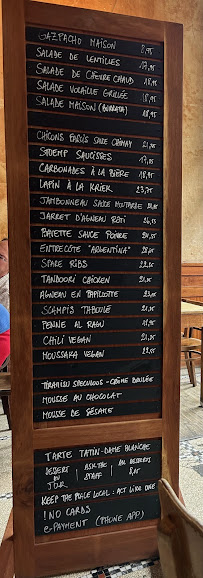 GAZPACHO MAISON 8,95
SALADE DE LENTILLES 17,95
SALADE DE CHÈVRE CHAUD 18,95
SALADE VOLAILLE GRILLÉE 18,95
SALADE MAISON (BURRATA) 18,95
CHICONS FARCIS SAUCE CHIMAY
STOEMP SAUCISSES 17,95
CARBONADES À LA BIÈRE
LAPIN À LA KRIEK 23,75
JAMBONNEAU SAUCE MOUTARDE
JARRET D'AGNEAU RÔTI
BAVETTE SAUCE POIVRE
ENTRECÔTE "ARGENTINA"
SPARE RIBS
TANDOORI CHICKEN
AGNEAU EN PAPILLOTE
SCAMPIS TABOULÉ
PENNE AL RAGU
CHILI VEGAN
MOUSSAKA VEGAN
TIRAMISU SPECULOOS - CRÈME BRULÉE
MOUSSE AU CHOCOLAT
MOUSSE DE SÉSAME
TARTE TATIN - DAME BLANCHE
DESSERT DU JOUR / ASK THE STAFF / ALL DESSERTS
KEEP THE PLACE LOCAL: ACT LIKE ONE
! NO CARDS
e-PAYMENT (PHONE APP)